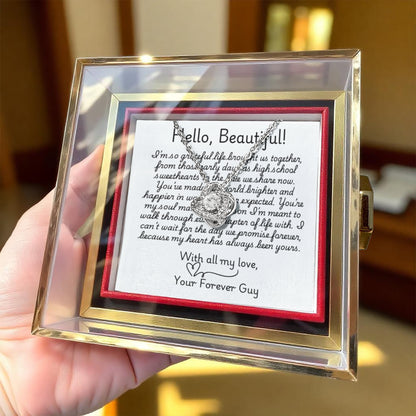 Hello, Beautiful!
I'm so grateful life brought us together,
from those early days as high school
sweethearts to the life we share now.
You've made my world brighter and
happier in ways I never expected. You're
my soul mate, the person I'm meant to
walk through every chapter of life with. I
can't wait for the day we promise forever,
because my heart has always been yours.
With all my love,
Your Forever Guy